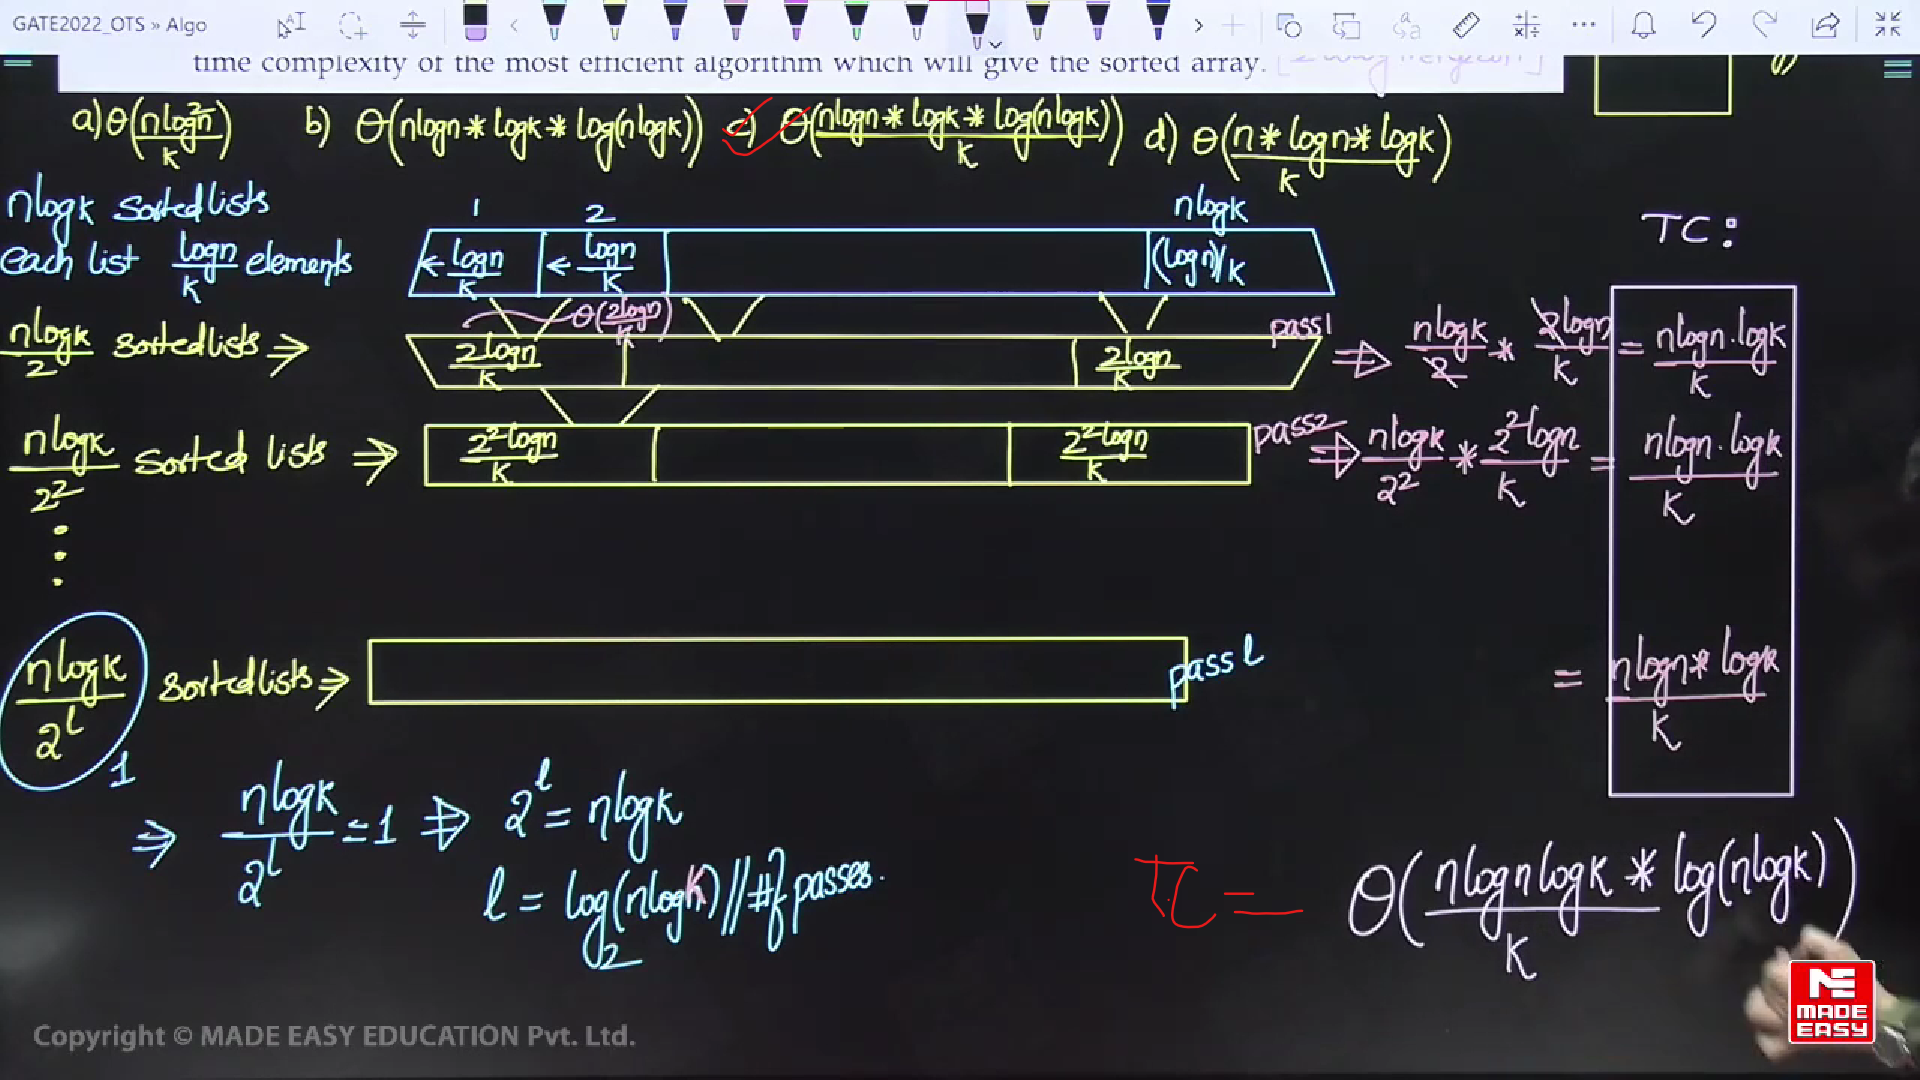 GATE2022_OTS » Algo
time complexity of the most efficient algorithm which will give the sorted array.
a) θ(nlog²n/k) b) θ(nlogn * logk * log(nlogk)) c) θ(nlogn * logk * log(nlogk)/k) d) θ(n * logn * logk/k)
nlogk sorted lists
each list logn/k elements
1 2 nlogk
← logn/k ← logn/k (logn)/k
θ(2logn/k)
nlogk/2 sorted lists ⇒ 2logn/k 2logn/k pass1 ⇒ nlogk/2 * 2logn/k = nlogn.logk/k
nlogk/2² sorted lists ⇒ 2²logn/k 2²logn/k pass2 ⇒ nlogk/2² * 2²logn/k = nlogn.logk/k
TC:
nlogk/2^l sorted lists ⇒ pass l = nlogn * logk/k
1
⇒ nlogk/2^l = 1 ⇒ 2^l = nlogk
l = log₂(nlogk) // # of passes.
TC = θ(nlognlogk/k * log(nlogk))
Copyright © MADE EASY EDUCATION Pvt. Ltd.
ME
MADE
EASY